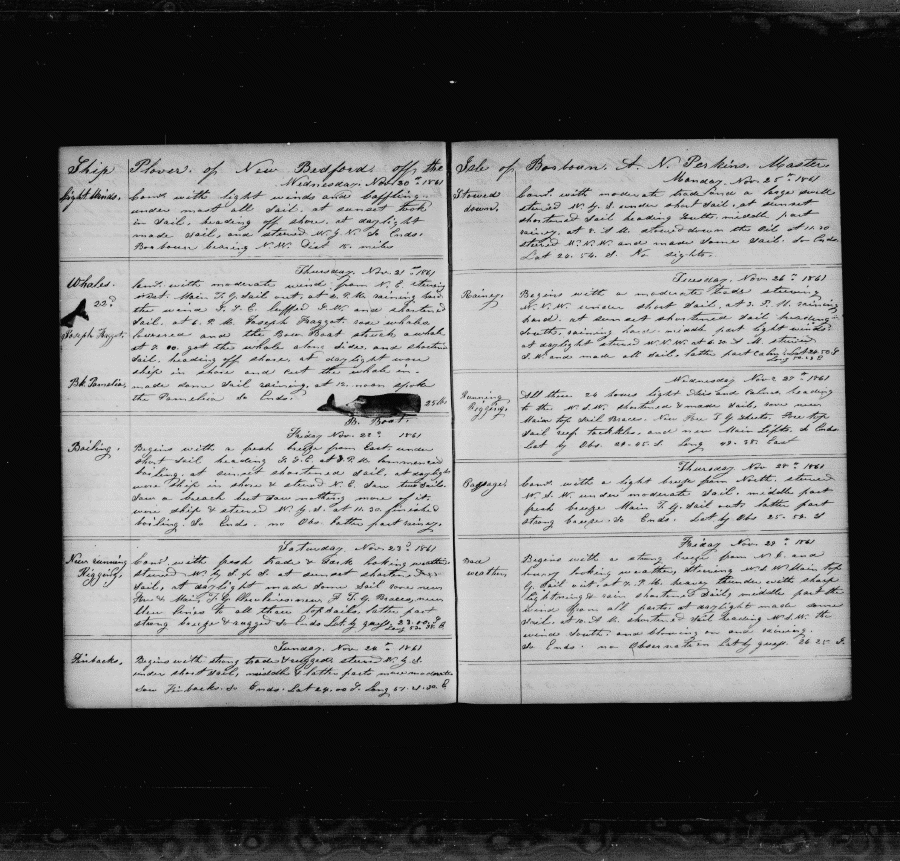 Ship Plover. of New Bedford. off the
Wednesday Nov. 20th 1861
Light Winds. Comd. with light winds and baffling
under mast all sail. at sunset took
in sail. heading off shore, at daylight
made sail, and steered W. by N. So Ends.
Bourboun bearing N.W. Dist miles
Thursday. Nov. 21st 1861
Whales. Comd. with moderate wind from N. E. steering
West. Main T. G. Sail out. at P.M. raining hard
22d the wind S. S. E. luffed S.W. and shortened
sail. at 6. P. M. Joseph Fraggat. rose whales
Joseph Fraggat. lowered and the Bow Boat struck a whale
at 7.00. got the whale along side, and shortened
sail. heading off shore, at daylight wore
ship in shore and cut the whale in.
Bk Pamelia made some sail raining, at 12. noon spoke
the Pamelia So Ends 25 bbls
B. Boat.
Friday Nov. 22d 1861
Boiling. Begins with a fresh breeze from East. under
short sail heading S. S. E. at P. M. commenced
boiling. at sunset shortened sail. at daylight
wore ship in shore & steered N. E. Saw two sails.
Saw a breach but saw nothing more of it.
wore ship & steered W. by S. at 11.30 finished
boiling. So Ends. no Obs. latter part rainy.
Saturday. Nov. 23d 1861
New running Rigging. Comd. with fresh trade & dark looking weather
steered W. by S. at sunset shorten, down
sail, at daylight made some sail rove new
Fore & Main T. G. Clewlines new F. T. G. Braces, new
Clew lines to all three topsails. latter part
strong breeze & ragged So Ends Lat by guess 23.00 S
Long E
Sunday. Nov. 24th 1861
Finbacks. Begins with strong trade & rugged, steered W. by S.
under short sail, middle & latter parts more moderate
saw Finbacks. So Ends. Lat 24.00 S. Long 51. 30 E
Isle of Bourboun. A. N. Perkins. Master
Monday. Nov. 25th 1861
Stowed down. Comd. with moderate trade and a large swell
steered W. by S. under short sail. at sunset
shortened sail heading South. middle part
rainy. at 8. A M. stowed down the Oil at 11.30
steered W.N.W. and made some sail. So Ends
Lat 24. 54. S. No sights.
Tuesday. Nov. 26th 1861
Rainy. Begins with a moderate trade steering
W.N.W. under short sail. at 3. P. M. raining
hard. at sunset shortened sail heading
South, raining hard middle part light winds
at daylight steered W.N.W. at 6.30 A M. steered
S.W. and made all sail. latter part calm. Lat S
Long E
Wednesday Nov. 27th 1861
Running Rigging. All these 24 hours light Airs and Calms, heading
to the W.S.W. shortened & made sail, rove new
Main top sail Braces. New Fore T G Sheets. Fore top
sail reef tackles, and new Main Lifts. So Ends
Lat by Obs. 25. 45. S Long 49. 38. East
Thursday Nov 28th 1861
Passage. Comd. with a light breeze from North. steered
W. S. W. under moderate sail. middle part
fresh breeze Main T. G. sail out. latter part
strong breeze. So Ends. Lat by Obs 25. 52. S
Friday Nov. 29th 1861
Bad weather, Begins with a strong breeze from N. E. and
hurry looking weather, steering W S W. Main top
G. sail out. at 7. P M. heavy thunder with sharp
lightning & rain shortened sail, middle part the
wind from all parts, at daylight made some
sail. at 10. A M. shortened sail heading W.S.W. the
wind South. and blowing on and raining.
So Ends. no Observation Lat by guess 26. 25. S.